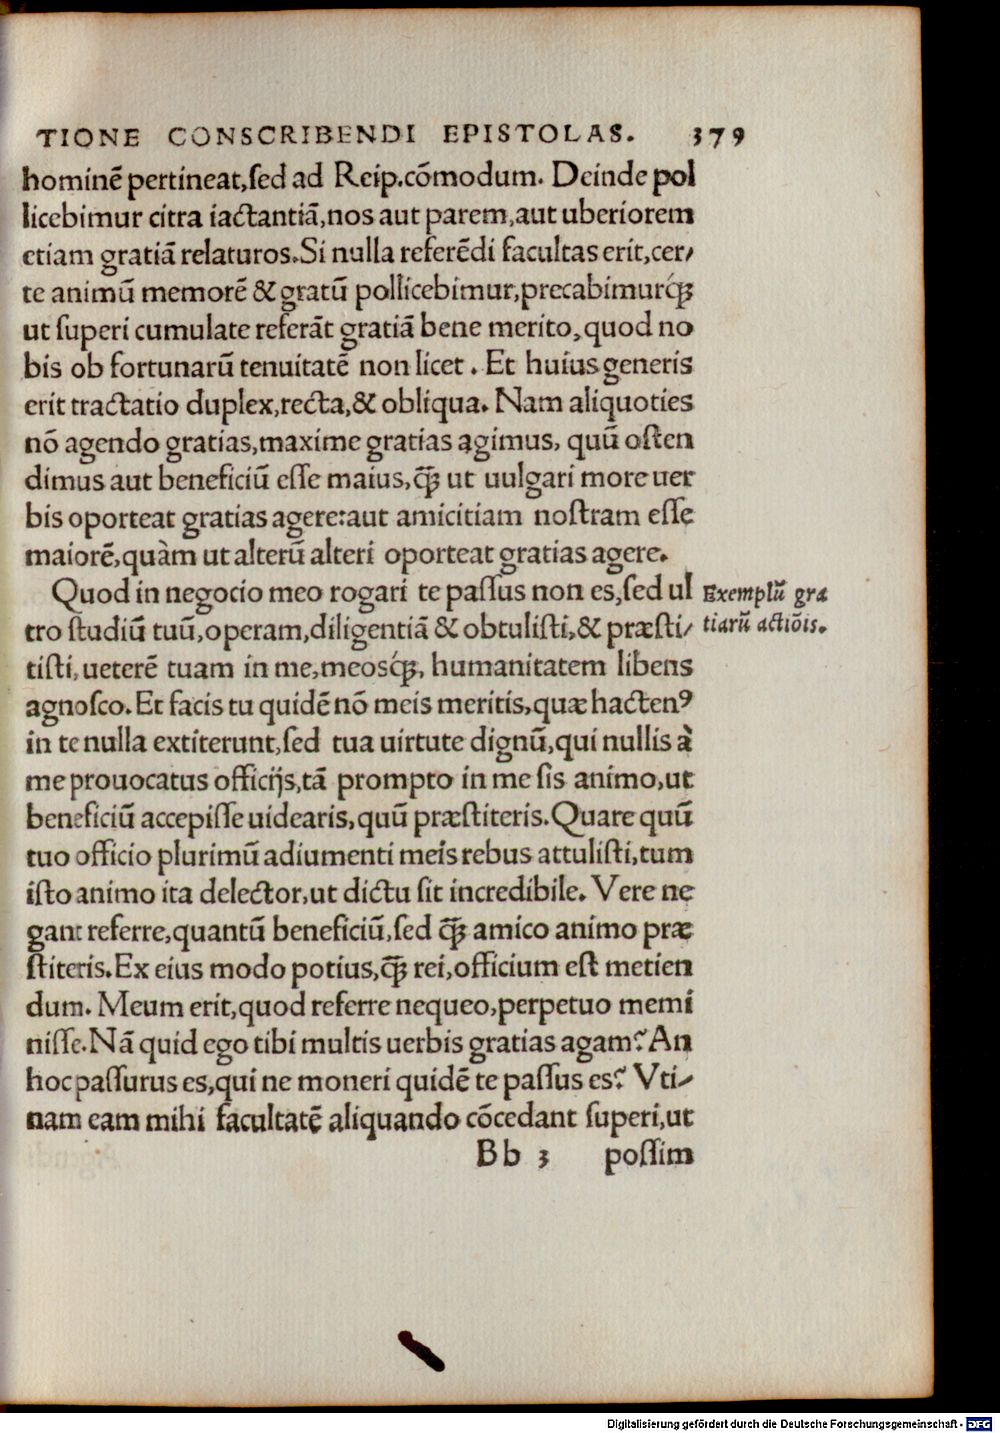 TIONE CONSCRIBENDI EPISTOLAS. 379
hominē pertineat,ſed ad Reip.cōmodum. Deinde pol
licebimur citra iactantiā,nos aut parem,aut uberiorem
etiam gratiā relaturos.Si nulla referēdi facultas erit,cer/
te animū memorē & gratū pollicebimur,precabimurq́ꝫ
ut ſuperi cumulate referāt gratiā bene merito,quod no
bis ob fortunarū tenuitatē non licet . Et huius generis
erit tractatio duplex,recta,& obliqua. Nam aliquoties
nō agendo gratias,maxime gratias agimus, quū oſten
dimus aut beneficiū eſſe maius,q̄ꝫ ut uulgari more uer
bis oporteat gratias agere:aut amicitiam noſtram eſſe
maiorē,quàm ut alterū alteri oporteat gratias agere.
Quod in negocio meo rogari te paſſus non es,ſed ul
tro ſtudiū tuū,operam,diligentiā & obtuliſti,& præſti/
tiſti,ueterē tuam in me,meosq́ꝫ, humanitatem libens
agnoſco.Et facis tu quidē nō meis meritis,quæ hactenꝰ
in te nulla extiterunt,ſed tua uirtute dignū,qui nullis à
me prouocatus officijs,tā prompto in me ſis animo,ut
beneficiū accepiſſe uidearis,quū præſtiteris.Quare quū
tuo officio plurimū adiumenti meis rebus attuliſti,tum
iſto animo ita delector,ut dictu ſit incredibile. Vere ne
gant referre,quantū beneficiū,ſed q̄ꝫ amico animo præ
ſtiteris.Ex eius modo potius,q̄ꝫ rei,officium eſt metien
dum. Meum erit,quod referre nequeo,perpetuo memi
niſſe.Nā quid ego tibi multis uerbis gratias agam? An
hoc paſſurus es,qui ne moneri quidē te paſſus es? Vti/
nam eam mihi facultatē aliquando cōcedant ſuperi,ut
Bb 3 poſſim
Exemplū gra
tiarū actiōis.
Digitalisierung gefördert durch die Deutsche Forschungsgemeinschaft - DFG